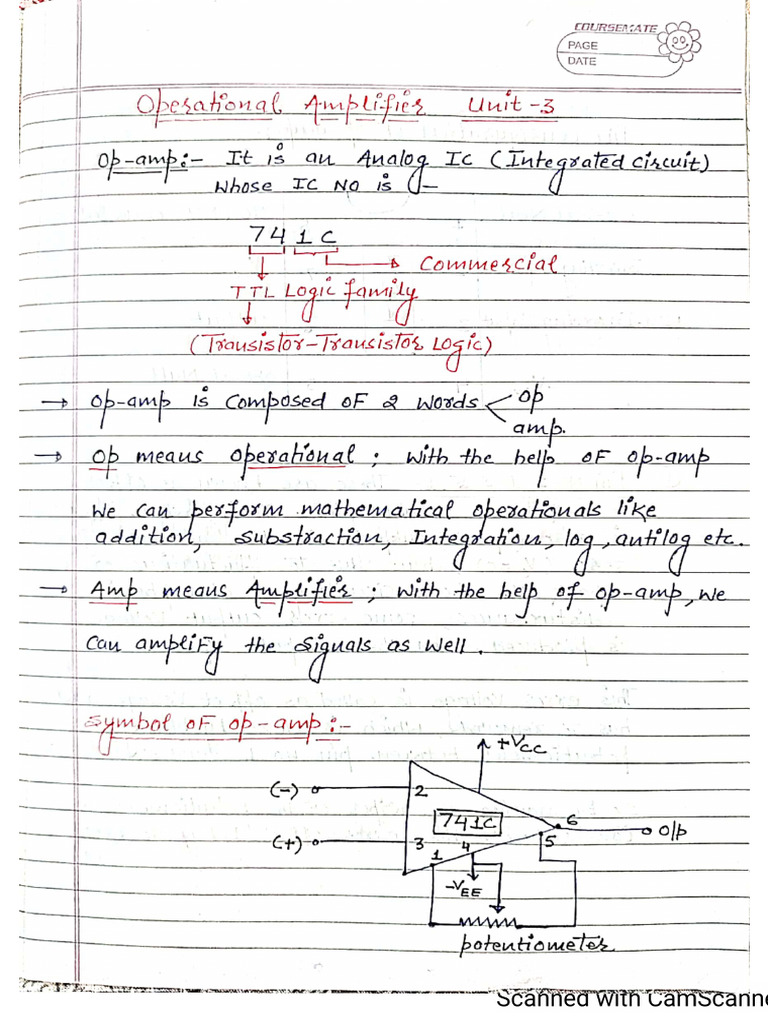 COURSEMATE
PAGE
DATE
Operational Amplifier Unit-3
Op-amp:- It is an Analog IC (Integrated circuit)
Whose IC No is -
741C
Commercial
TTL Logic family
(Transistor-Transistor Logic)
→ Op-amp is composed of 2 words < op
amp.
→ Op means operational ; with the help of op-amp
we can perform mathematical operationals like
addition, substraction, Integration, log, antilog etc.
→ Amp means Amplifier ; with the help of op-amp, we
can amplify the signals as well.
symbol of op-amp :-
+VCC
(-) 2
741C 6 o/p
(+) 3 1 4 5
-VEE
potentiometer
Scanned with CamScanne